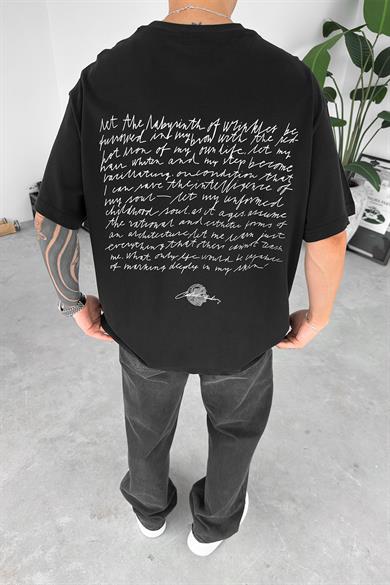 let the labyrinth of wrinkles be
furrowed in my brow with the red-
hot iron of my own life. let my
hair whiten and my step become
vacillating, on condition that
I can save the intelligence of
my soul — let my unformed
childhood soul as it ages assume
the rational and esthetic forms of
an architecture, let me learn just
everything that others cannot teach
me. What only life would be capable
of marking deeply in my skin.